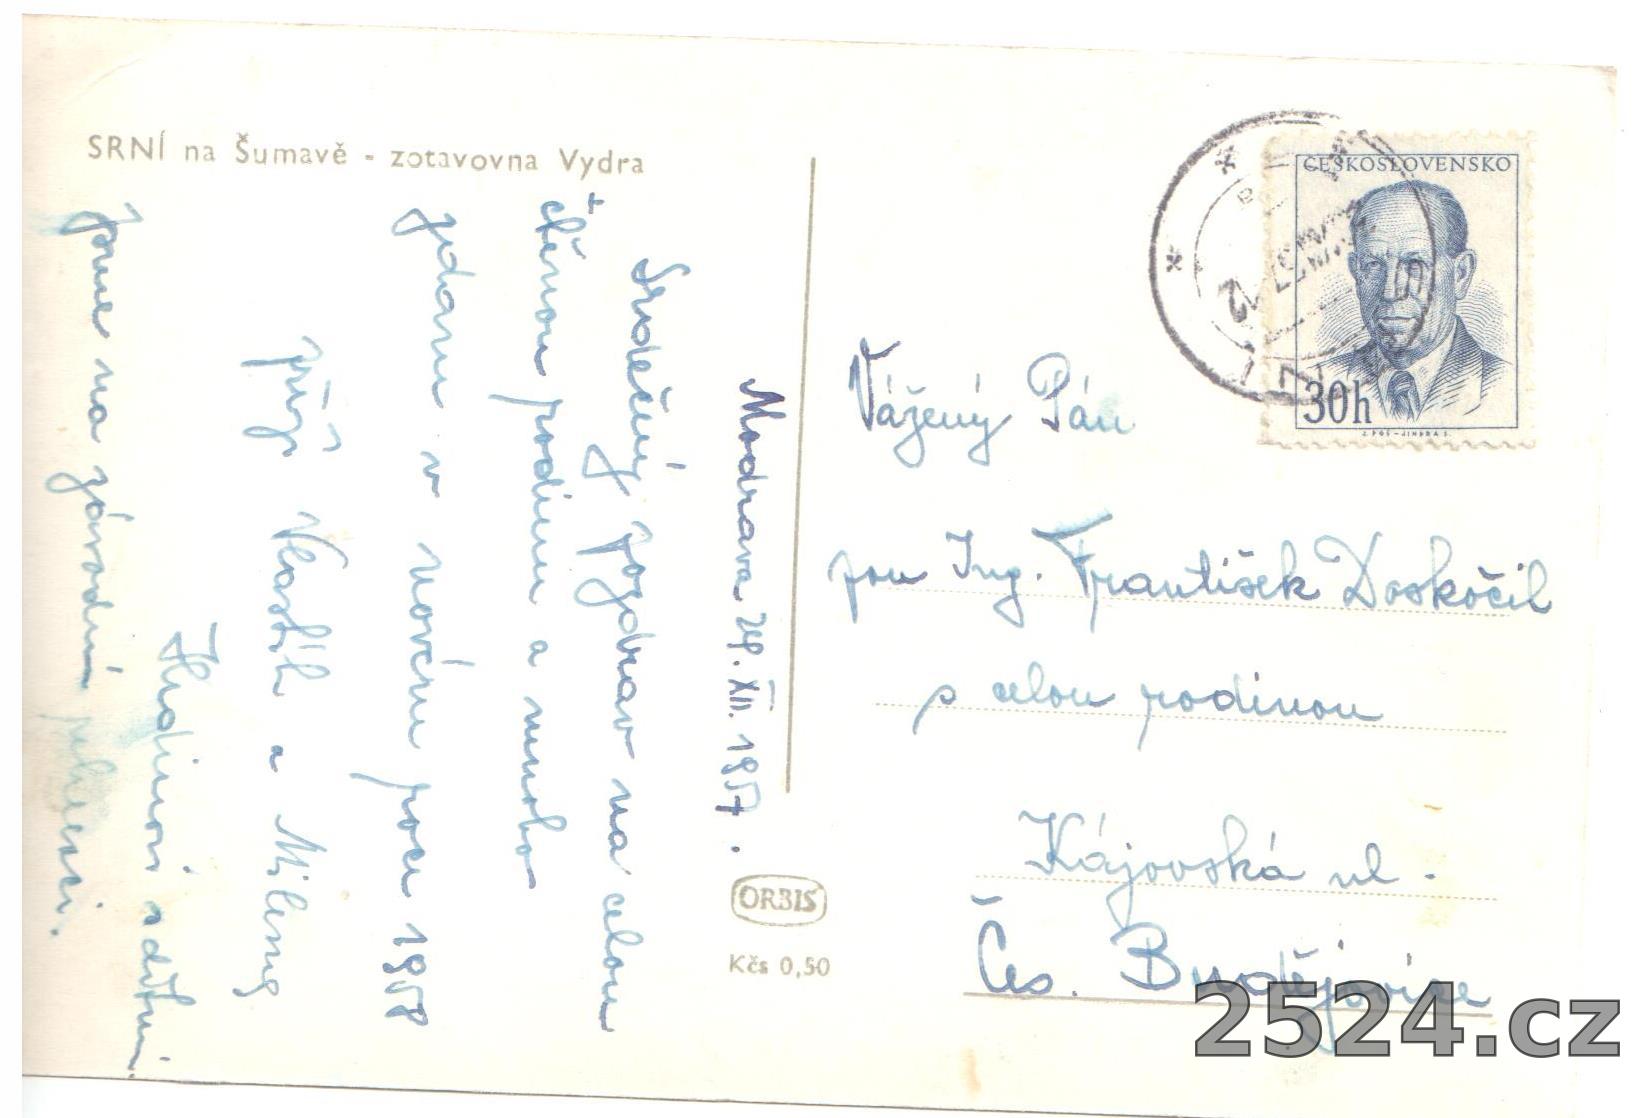 SRNÍ na Šumavě - zotavovna Vydra
Modrava 24. XII. 1957.
Srdečný pozdrav na celou
ctěnou rodinu a mnoho
zdaru v novém roce 1958
přejí Vlastík a Milena
s dětmi
Jsme na závodní rekreaci.
ORBIS
Kčs 0,50
ČESKOSLOVENSKO
30h
Vážený Pán
pan Ing. František Doskočil
s celou rodinou
Kájovská ul.
Čes. Budějovice
2524.cz